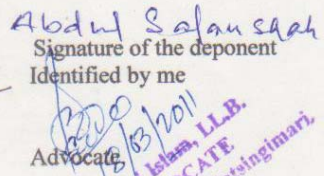 Abdul Salam Shah
Signature of the deponent
Identified by me
18/03/2011
Advocate
Islam, LL.B.